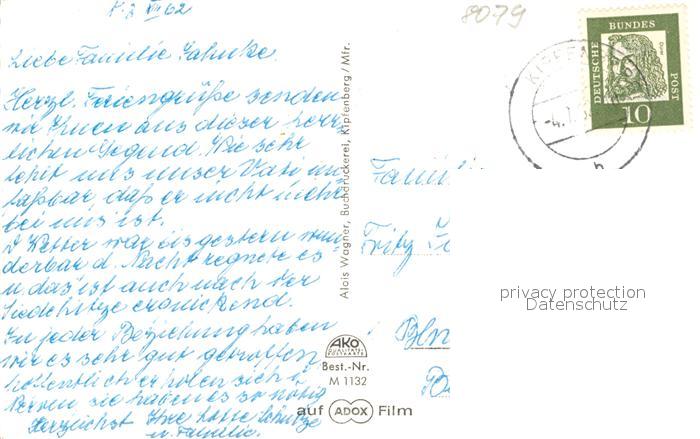 VIII 62
8079
Liebe Familie Jahnke.
Herzl. Feriengrüße senden
wir Ihnen aus dieser herr
lichen Gegend. Wie sehr
fehlt uns unser Vati un
faßbar, daß er nicht mehr
bei uns ist.
D. Wetter war bis gestern wun
derbar d. Nacht regnete es
u. das ist auch nach der
Siedehitze
In jeder Beziehung haben
wir es sehr gut getroffen
hoffentlich erholen sich
sie haben es so nötig
Herzlichst Ihre Lotte
u. Familie.
Alois Wagner, Buchdruckerei, Kipfenberg/Mfr.
AKO
Best.-Nr.
M 1132
auf ADOX Film
DEUTSCHE BUNDES POST
Dürer
10
KIPFEN
Famili
Fritz
privacy protection
Datenschutz